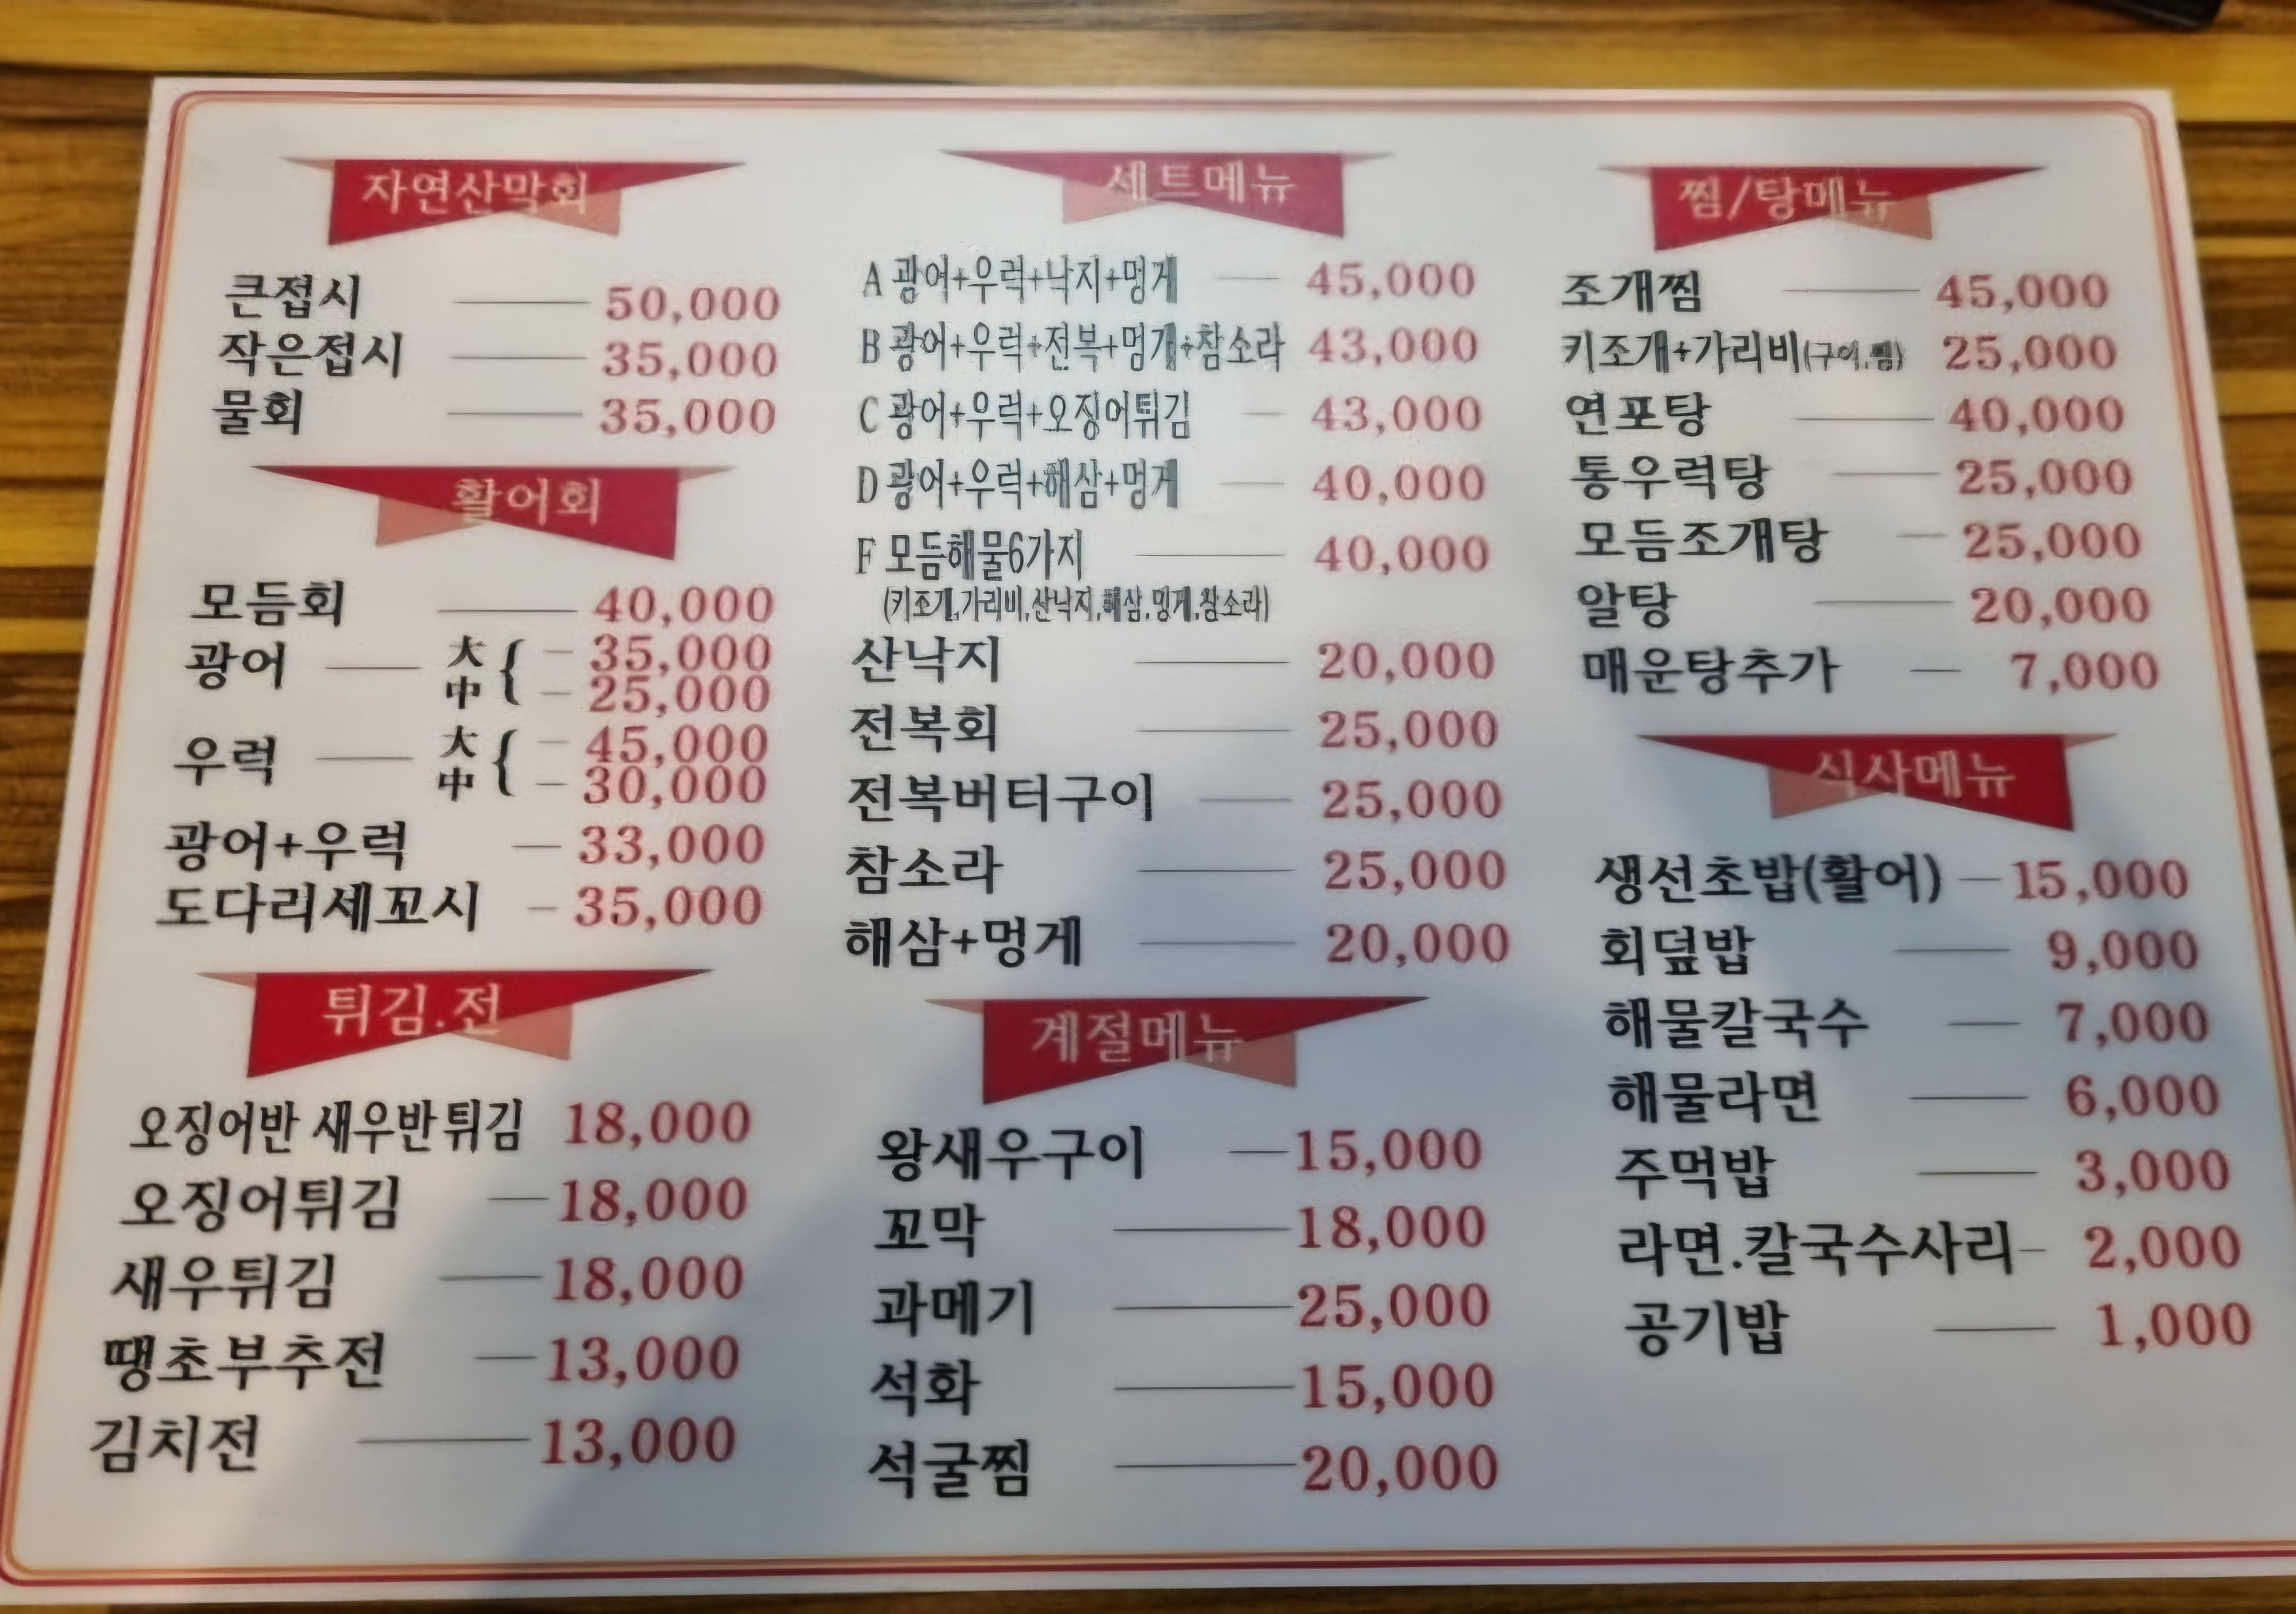 자연산막회
큰접시 50,000
작은접시 35,000
물회 35,000
활어회
모듬회 40,000
광어 大 35,000
中 25,000
우럭 大 45,000
中 30,000
광어+우럭 33,000
도다리세꼬시 35,000
튀김.전
오징어반 새우반 튀김 18,000
오징어튀김 18,000
새우튀김 18,000
땡초부추전 13,000
김치전 13,000
세트메뉴
A 광어+우럭+낙지+멍게 45,000
B 광어+우럭+전복+멍개+참소라 43,000
C 광어+우럭+오징어튀김 43,000
D 광어+우럭+해삼+멍게 40,000
F 모듬해물6가지 40,000
(키조개,가리비.산낙지.해삼.멍게.참소라)
산낙지 20,000
전복회 25,000
전복버터구이 25,000
참소라 25,000
해삼+멍게 20,000
계절메뉴
왕새우구이 15,000
꼬막 18,000
과메기 25,000
석화 15,000
석굴찜 20,000
찜/탕메뉴
조개찜 45,000
키조개+가리비 25,000
연포탕 40,000
통우럭탕 25,000
모듬조개탕 25,000
알탕 20,000
매운탕추가 7,000
식사메뉴
생선초밥(활어) 15,000
회덮밥 9,000
해물칼국수 7,000
해물라면 6,000
주먹밥 3,000
라면.칼국수사리 2,000
공기밥 1,000